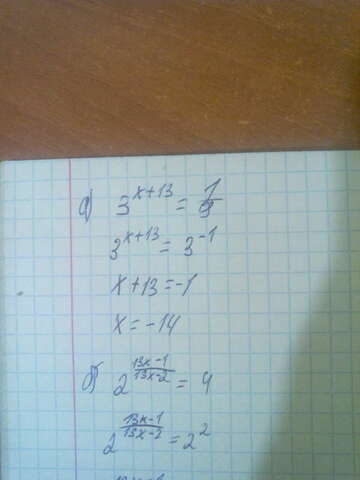 а) 3^{x+13} = 1/3
3^{x+13} = 3^{-1}
x+13 = -1
x = -14
б) 2^{\frac{13x-1}{13x-2}} = 4
2^{\frac{13x-1}{13x-2}} = 2^2